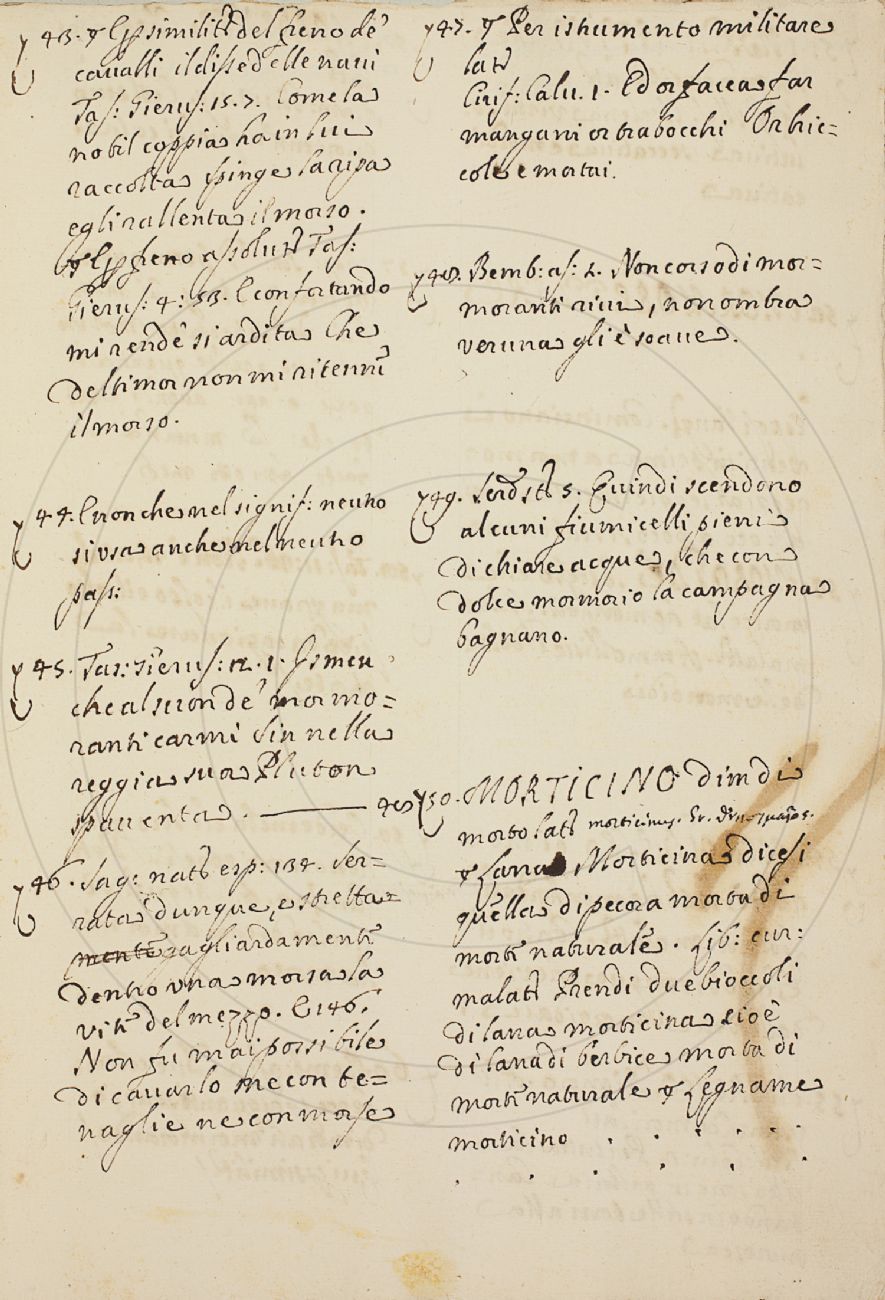 43. § E p similitᵉ del freno de'
cavalli il disse delle navi
Tas: Gierus: 15. 7. Come la
nobil coppia ha in lui
raccolta spinge la ripa
e gli rallenta il morso.
§ E p freno assolutᵉ Tas:
Gierus: 4: 53. E confortando
mi rendè sì ardita Che
del timor non mi ritenne
il morso.
44. E non che nel signif: neutro
si usa anche nel neutro
pass:
45. Tas: Gierus: 12. 1. Ismen
che al suon de' mormo=
ranti carmi Sin nella
reggia sua Pluton
spaventa.
46. Sag: natᵉ esp: 134. Ser=
rata dunque, e stretta=
mente gagliardamente
dentro una morsa la
vite del mezzo. E 146.
Non fu mai possibile
di cavarlo ne con te=
naglie ne con morse
47. § Per istrumento militare
latᵉ
Cirif: Calv. 1. Ed or faceva far
mangani or trabocchi Or bric=
cole e mortai.
48. Bemb: as: 2. Non corso di mor=
moranti rivi, non ombra
veruna gli è soave.
49. 5. Quindi scendono
alcuni fiumicelli pieni
di chiare acque, che con
dolce mormorio la campagna
bagnano.
50. MORTICINO dim di
morto latᵉ morticinus. Gr.
§ Lana Morticina dicesi
quella di pecora morta di
morte naturale. Lib: cur:
malatᵉ Prendi due bioccoli
di lana morticina cioè
di lana di berbice morta di
morte naturale § Legname
morticino . . . . .
. . . . . .